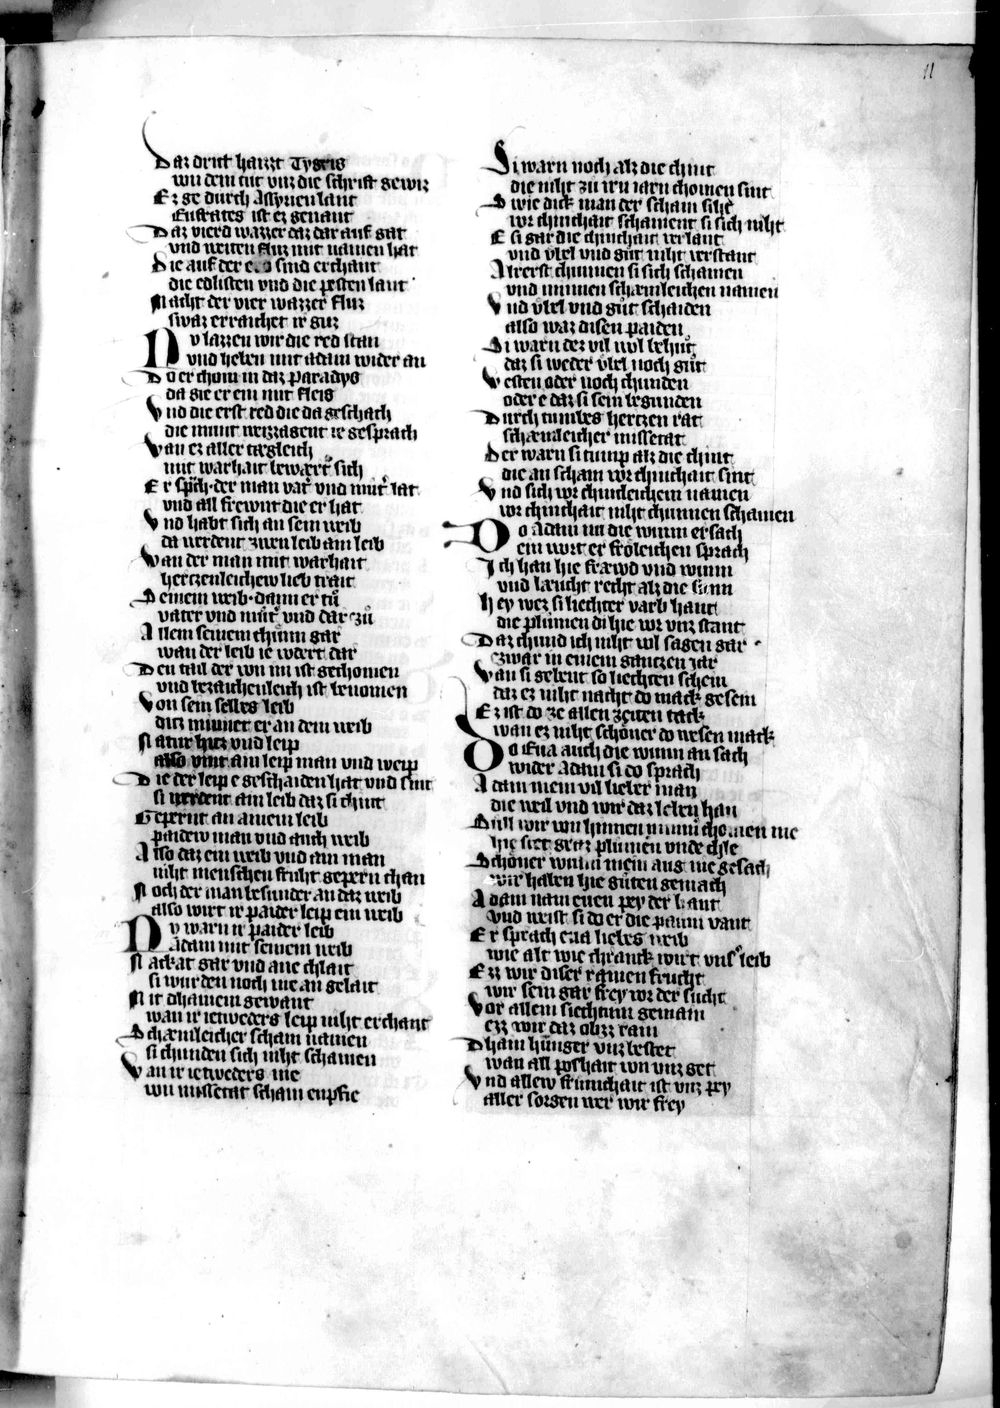 11
Daz dritt haizzt Tygris
von dem tut vnz die schrift gewiz
Ez ge durch Assyrien lant
Eufrates ist ez genant
Daz vierd wazzer daz dar auf gat
vnd weiten fluz mit namen hat
Die auf der sind erchant
die edlisten vnd die pesten lant
Macht der vier wazzer fluz
swaz erraichet ir guz
Nv lazzen wir die red stan
vnd heben mit adam wider an
Do er chom in daz paradys
da sie er ein mit fleis
Vnd die erst red die da geschach
die munt weizzagent ir gesprach
Wan ez aller tægleich
mit warhait bewært sich
Er sp̃ch·der man vat᷑ vnd mut᷑ lat
vnd all frewnt die er hat
Vnd habt sich an sein weib
da werdent zwen leib ain leib
Wan der man mit warhait
hertzenleichew lieb trait
Seinem weib·dann er tů
vater vnd můt᷑ vnd dar zů
Allem seinem chůnn gar
wan der leib ie wdert dar
Den tail der von im ist gechomen
vnd bezaichenleich ist benomen
Von sein selbes leib
ditz minnet er an dem weib
Natur hitz vnd leip
also vint ain leip man vnd weip
Die der leip e geschaiden hat vnd sint
si werdent ain leib daz si chint
Gepernt an ainem leib
paidew man vnd auch weib
Also daz ein weib vnd ain man
niht menschen frůht gepern chan
Noch der man besunder an daz weib
also wirt ir paider leip ein weib
Nv warn ir paider leib
Adam mit seinem weib
Nackat gar vnd ane chlait
si wurden noch nie an gelait
Mit dhainem gewant
wan ir ietweders leip niht erchant
Schæmleicher scham namen
si chunden sich niht schamen
Wan ir ietweders nie
von missetat scham enpfie
Si warn noch alz die chint
die niht zů irn iarn chomen sint
Swie dick man der scham siht
vor chinthait schament si sich niht
E si gar die chinthait verlant
vnd vbel vnd gůt niht verstant
Alrerst chunnen si sich schamen
vnd nimmen schæmleichen namen
Vnd vbel vnd gůt schaiden
also waz disen paiden
Si warn dez vil wol behůt
daz si weder vbel noch gůt
Westen oder noch chunden
oder e daz si sein begunden
Durch tumbes hertzen rat
schæmleicher missetat
Der warn si tump alz die chint
die an scham vor chinthait sint
Vnd sich vor chintleichem namen
vor chinthait niht chunnen schamen
Do Adam nu die wunn ersach
ein wort er frŏleichen sprach
Ich han hie fræwd vnd wunn
vnd læucht recht alz die sunn
Hey wez si liechter varb hant
die plůmen di hie vor vnz stant
Daz chund ich niht wol sagen gar
zwar in einem gantzen iar
Wan si gebent so liechten schein
daz ez niht nacht do mack gesein
Ez ist do ze allen zeiten tack
wan ez niht schöner do wesen mack
Do Eua auch die wunn an sach
wider Adam si do sprach
Adam mein vil lieber man
die weil vnd wir daz leben han
Sull wir von hinnen nimm᷑ chomen nie
hie stet graz plůmen vnde chle
Schŏner wunn mein aug nie gesach
wir haben hie gůten gemach
Adam nam euen pey der hant
vnd weist si do er die paum vant
Er sprach eua liebes weib
wie alt wie chranck wirt vns᷑ leib
Ezz wir diser ramen frucht
wir sein gar frey vor der sucht
Vor allem siechtum gemain
ezz wir daz obzz rain
Dhain hunger vnz bestet
wan all poshait von vnz get
Vnd allew frumchait ist vnz pey
aller sorgen wer wir frey